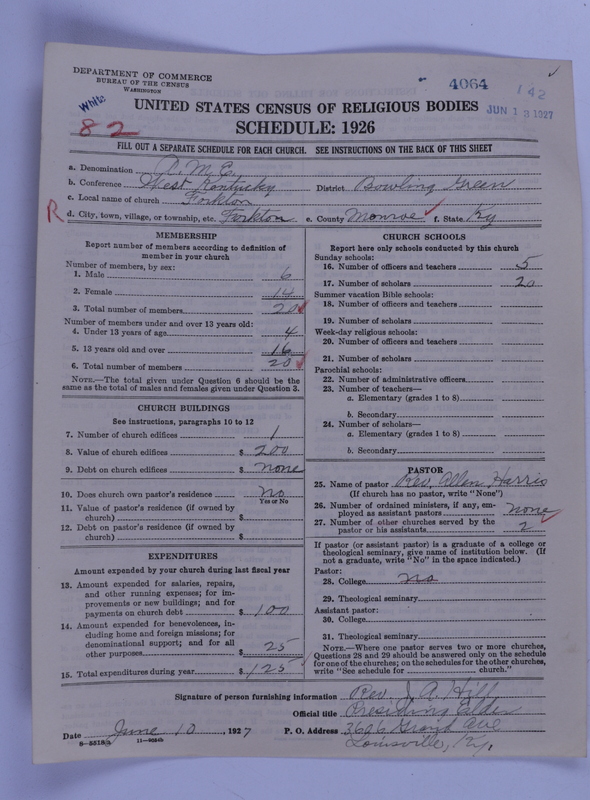 DEPARTMENT OF COMMERCE
BUREAU OF THE CENSUS
WASHINGTON
White
82
4064
142
JUN 13 1927
UNITED STATES CENSUS OF RELIGIOUS BODIES
SCHEDULE: 1926
FILL OUT A SEPARATE SCHEDULE FOR EACH CHURCH. SEE INSTRUCTIONS ON THE BACK OF THIS SHEET
a. Denomination A. M. E.
b. Conference West Kentucky District Bowling Green
c. Local name of church Forkton
R d. City, town, village, or township, etc. Forkton e. County Monroe f. State Ky
MEMBERSHIP
Report number of members according to definition of
member in your church
Number of members, by sex:
1. Male 6
2. Female 14
3. Total number of members 20
Number of members under and over 13 years old:
4. Under 13 years of age 4
5. 13 years old and over 16
6. Total number of members 20
NOTE.—The total given under Question 6 should be the
same as the total of males and females given under Question 3.
CHURCH BUILDINGS
See instructions, paragraphs 10 to 12
7. Number of church edifices 1
8. Value of church edifices $ 200
9. Debt on church edifices $ none
10. Does church own pastor's residence no
Yes or No
11. Value of pastor's residence (if owned by
church) $
12. Debt on pastor's residence (if owned by
church) $
EXPENDITURES
Amount expended by your church during last fiscal year
13. Amount expended for salaries, repairs,
and other running expenses; for im-
provements or new buildings; and for
payments on church debt $ 100
14. Amount expended for benevolences, in-
cluding home and foreign missions; for
denominational support; and for all
other purposes $ 25
15. Total expenditures during year $ 125
CHURCH SCHOOLS
Report here only schools conducted by this church
Sunday schools:
16. Number of officers and teachers 5
17. Number of scholars 20
Summer vacation Bible schools:
18. Number of officers and teachers
19. Number of scholars
Week-day religious schools:
20. Number of officers and teachers
21. Number of scholars
Parochial schools:
22. Number of administrative officers
23. Number of teachers—
a. Elementary (grades 1 to 8)
b. Secondary
24. Number of scholars—
a. Elementary (grades 1 to 8)
b. Secondary
PASTOR
25. Name of pastor Rev. Allen Harris
(If church has no pastor, write "None")
26. Number of ordained ministers, if any, em-
ployed as assistant pastors none
27. Number of other churches served by the
pastor or his assistants 2
If pastor (or assistant pastor) is a graduate of a college or
theological seminary, give name of institution below. (If
not a graduate, write "No" in the space indicated.)
Pastor:
28. College no
29. Theological seminary
Assistant pastor:
30. College
31. Theological seminary
NOTE.—Where one pastor serves two or more churches,
Questions 28 and 29 should be answered only on the schedule
for one of the churches; on the schedules for the other churches,
write "See schedule for church."
Signature of person furnishing information Rev. J. A. Hill
Official title Presiding Elder
Date June 10, 1927 P. O. Address 3626 Grand Ave
8-5518a 11-9024b Louisville, Ky.